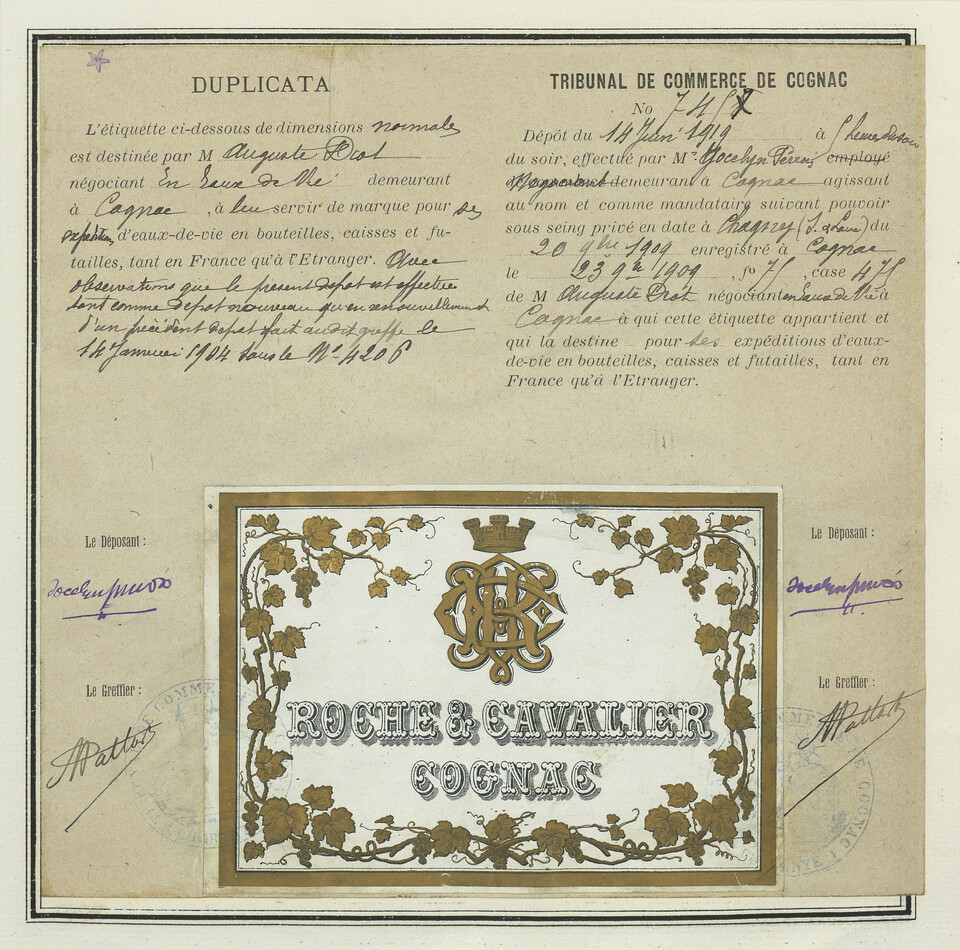 DUPLICATA
L'étiquette ci-dessous de dimensions normales
est destinée par M Auguste Drot
négociant En Eaux de Vie demeurant
à Cognac, à leu servir de marque pour ses
expéditions d'eaux-de-vie en bouteilles, caisses et fu-
tailles, tant en France qu'à l'Etranger. Avec
observations que le présent depot est effectué
tant comme depot nouveau qu'en renouvellement
d'un précédent depot fait au dit greffe le
14 Janvier 1904 sous le No 4206
TRIBUNAL DE COMMERCE DE COGNAC
No 745
Dépôt du 14 Juin 1919 à 5 heures du soir
du soir, effectué par Mr Jocelyn employé
demeurant à Cognac agissant
au nom et comme mandataire suivant pouvoir
sous seing privé en date à Chagny (S. & Loire) du
20 9bre 1909 enregistré à Cognac
le 23 9bre 1909, fo 75, case 475
de M Auguste Drot négociant en Eaux de Vie à
Cognac à qui cette étiquette appartient et
qui la destine pour ses expéditions d'eaux-
de-vie en bouteilles, caisses et futailles, tant en
France qu'à l'Etranger.
Le Déposant :
Le Greffier :
Le Déposant :
Le Greffier :
ROCHE & CAVALIER
COGNAC